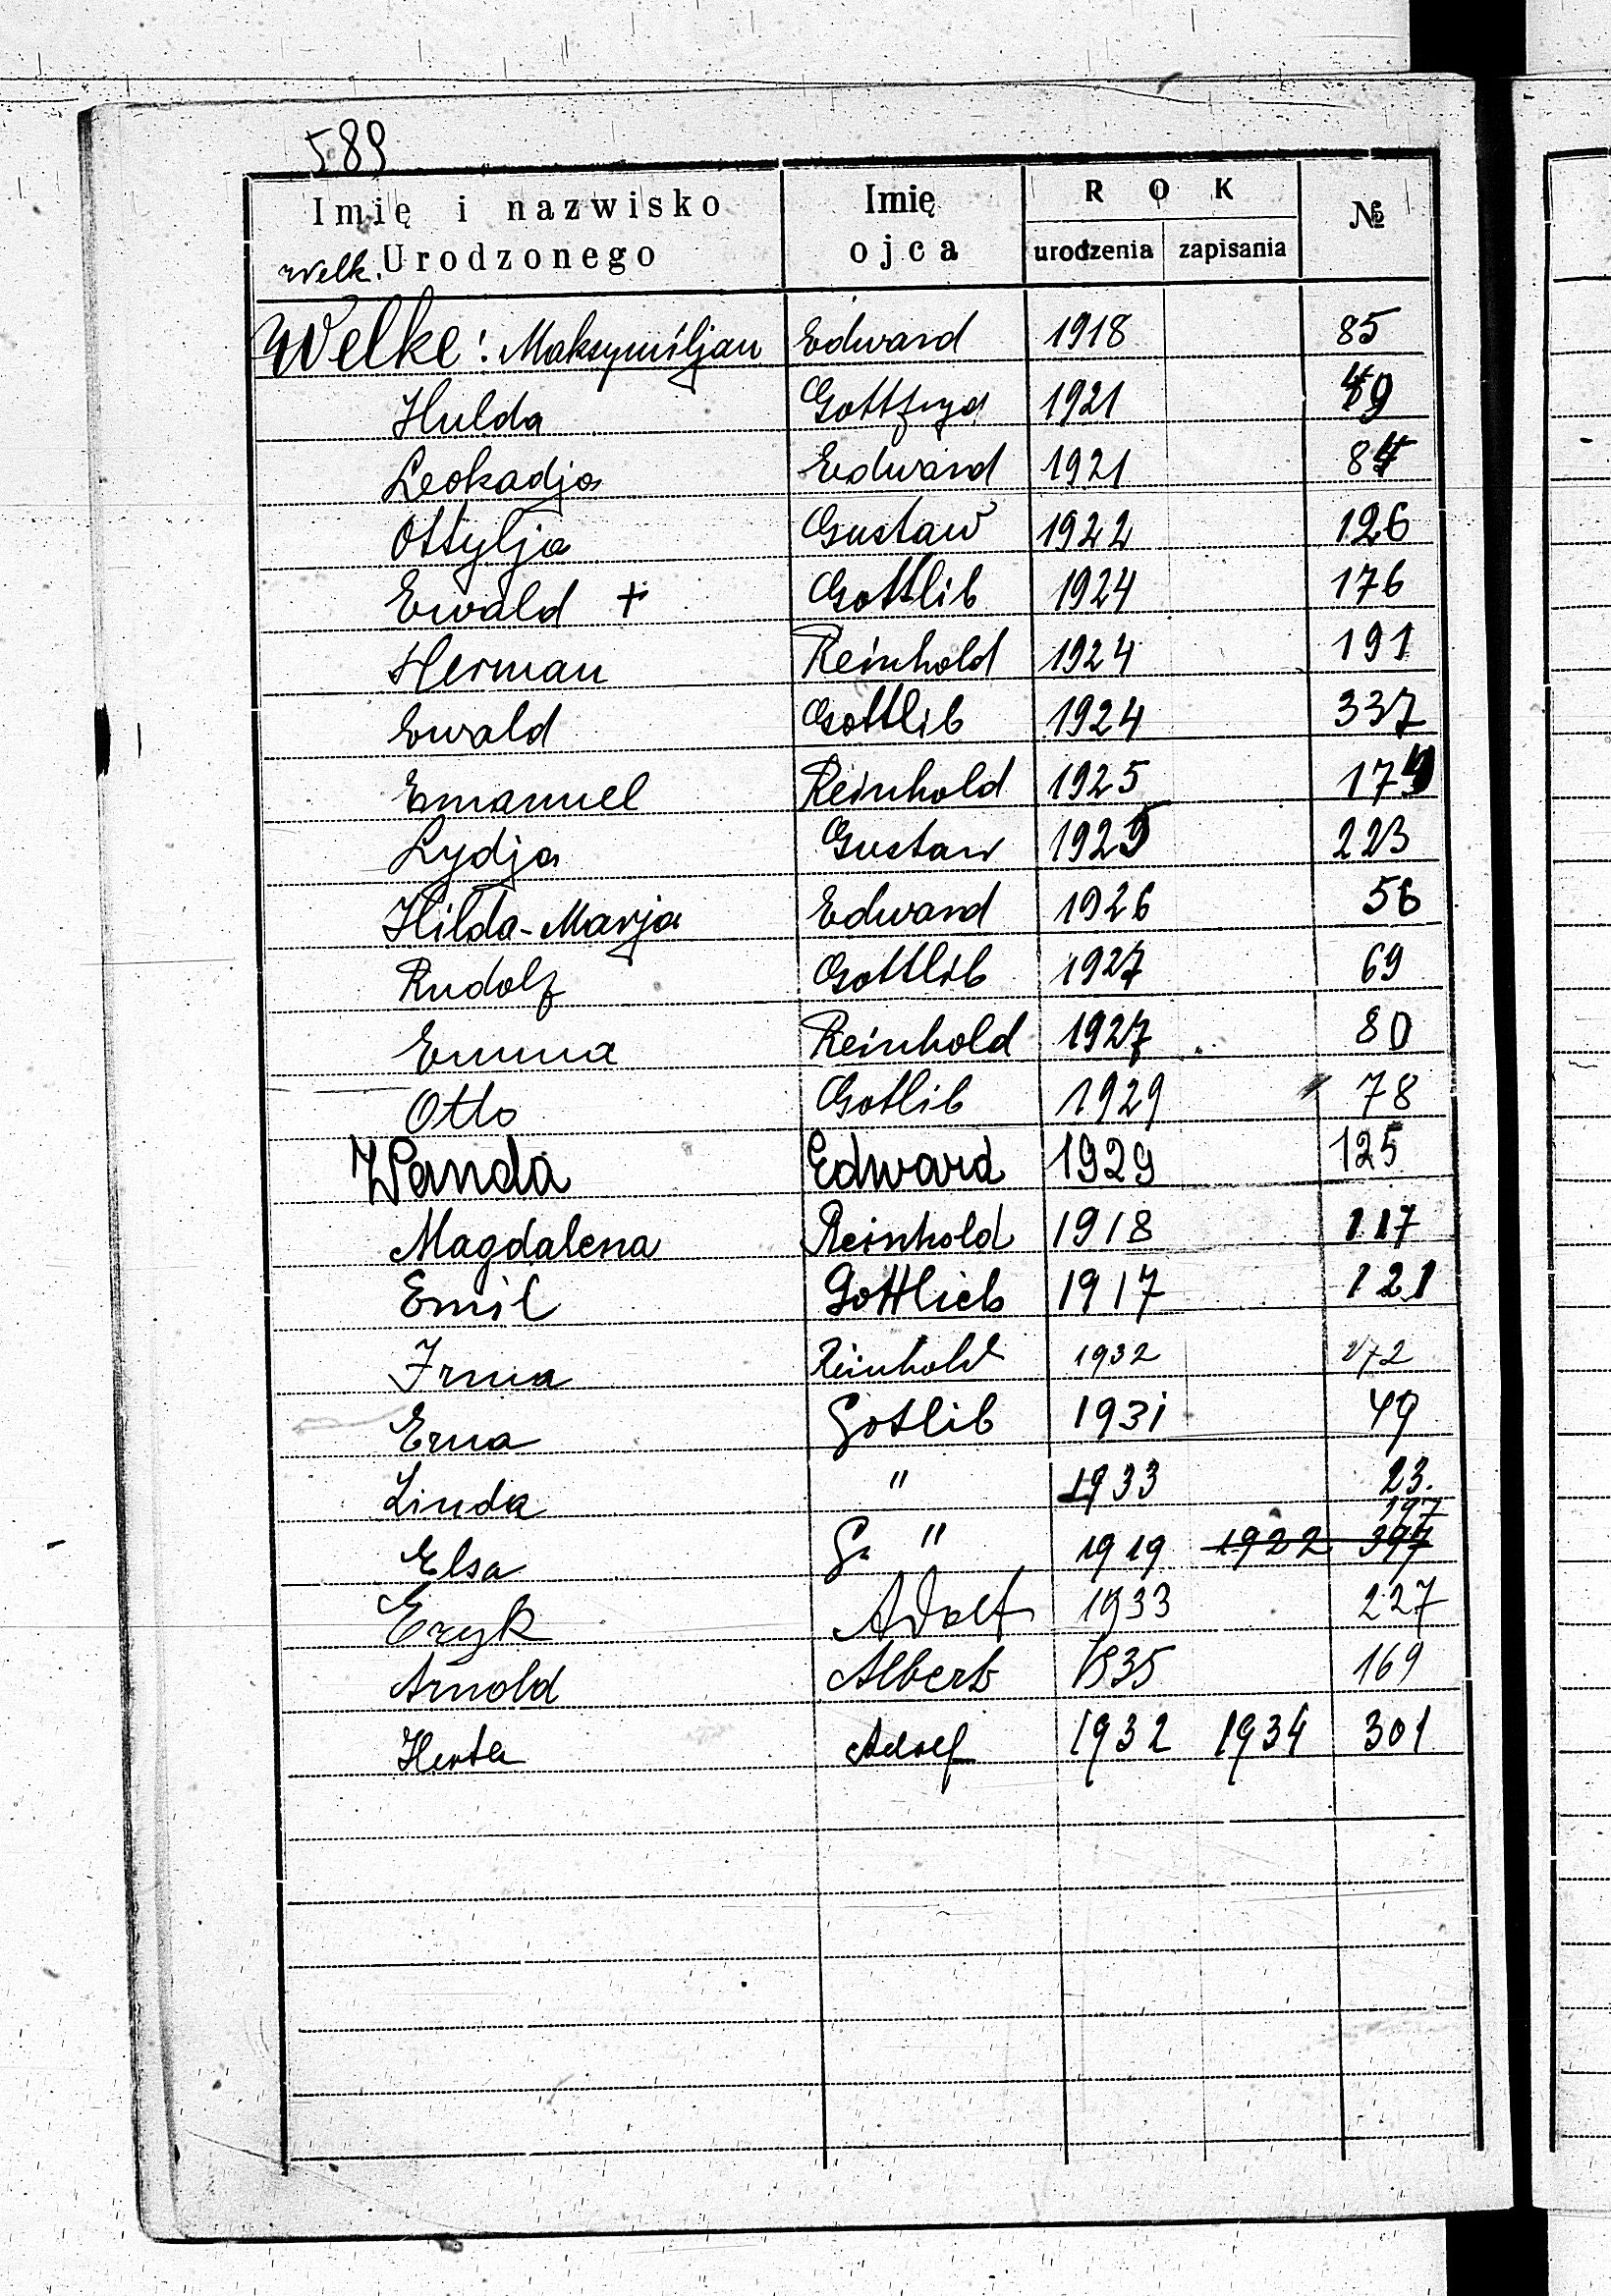 589
Imię i nazwisko Urodzonego Imię ojca ROK urodzenia zapisania №
Welk.
Welke: Maksymiljan Edward 1918 85
Hulda Gottfryd 1921
Leokadja Edward 1921
Ottylja Gustaw 1922 126
Ewald + Gottlib 1924 176
Herman Reinhold 1924 191
Ewald Gottlib 1924 337
Emanuel Reinhold 1925
Lydja Gustaw 1925 223
Hilda-Marja Edward 1926 56
Rudolf Gottlib 1927 69
Emma Reinhold 1927 80
Otto Gotlib 1929 78
Wanda Edward 1929 125
Magdalena Reinhold 1918 117
Emil Gottlieb 1917 121
Irma Reinhold 1932 272
Erna Gotlib 1931 49
Linda " 1933 23.
Elsa G. " 1919 1922 397 197
Eryk Adolf 1933 227
Arnold Albert 1935 169
Herta Adolf 1932 1934 301